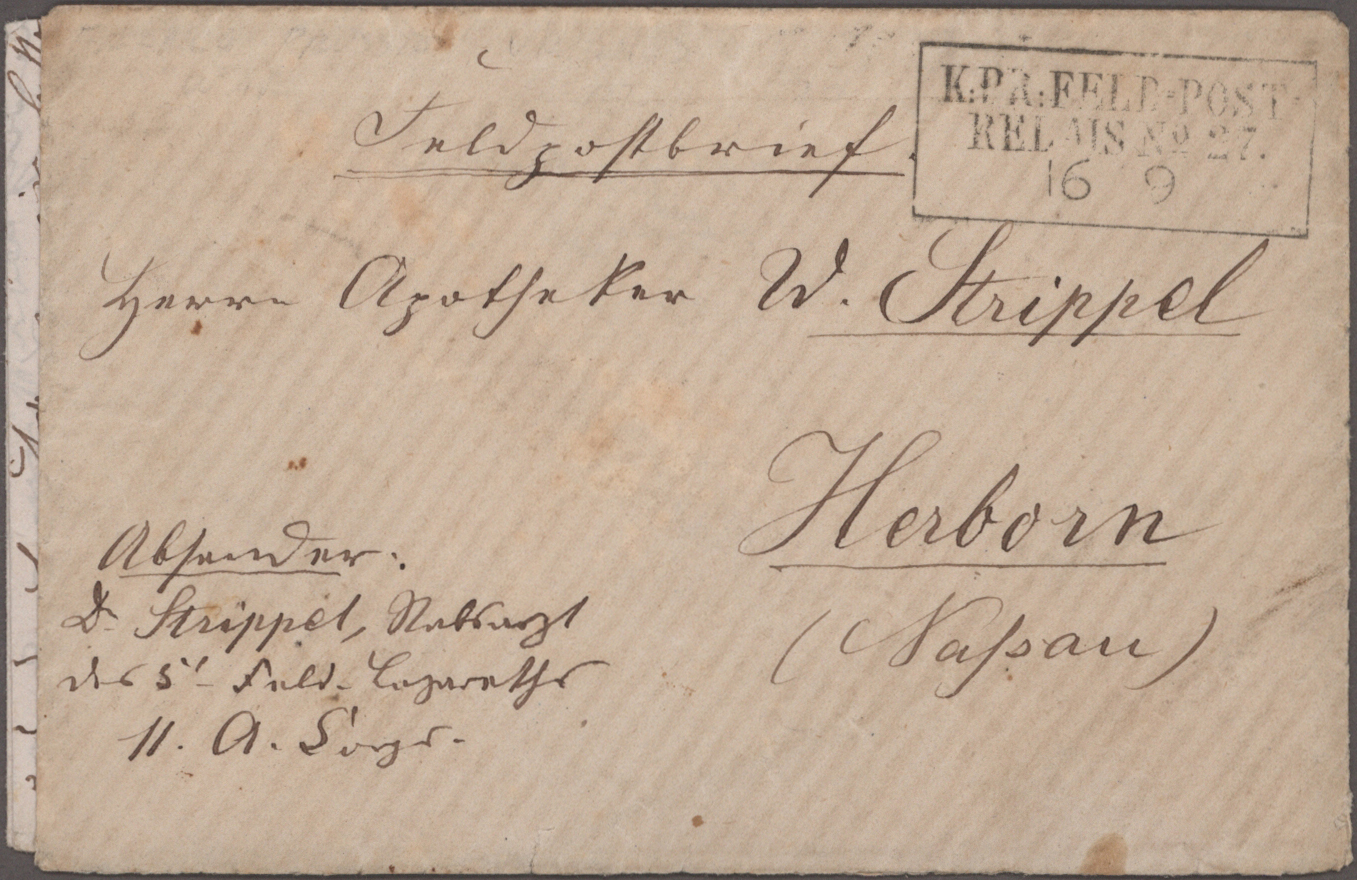 K:PR:FELD-POST-
RELAIS No 27.
16 9
Feldpostbrief.
Herrn Apotheker W. Strippel
Herborn
(Naſsau)
Absender:
Dr Strippel, Stabsarzt
des 5t Feld-Lazareths
11. A. Corps.